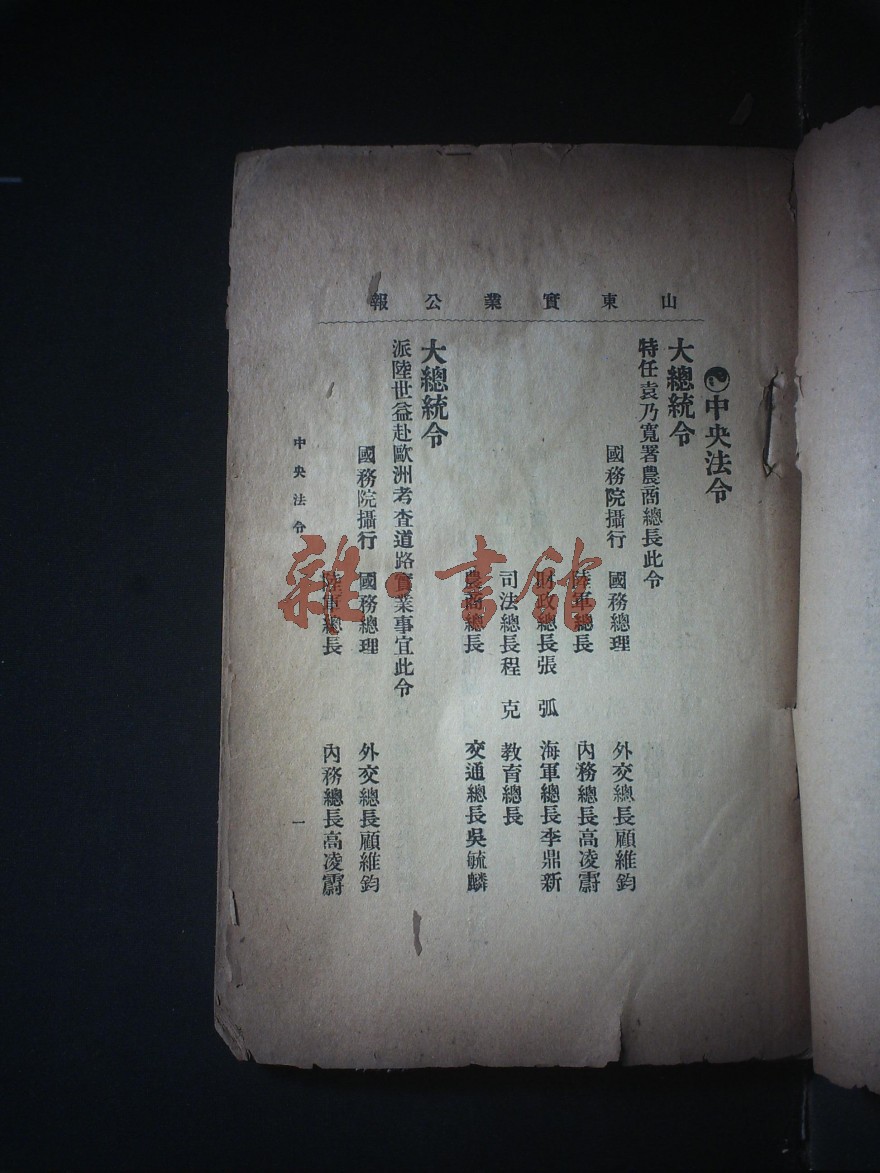 山東實業公報
中央法令
大總統令
特任袁乃寬署農商總長此令
國務院攝行 國務總理 外交總長顧維鈞
陸軍總長 內務總長高凌霨
財政總長張 弧 海軍總長李鼎新
司法總長程 克 教育總長
農商總長 交通總長吳毓麟
大總統令
派陸世益赴歐洲考查道路實業事宜此令
國務院攝行 國務總理 外交總長顧維鈞
陸軍總長 內務總長高凌霨
中央法令 一
雜·書館